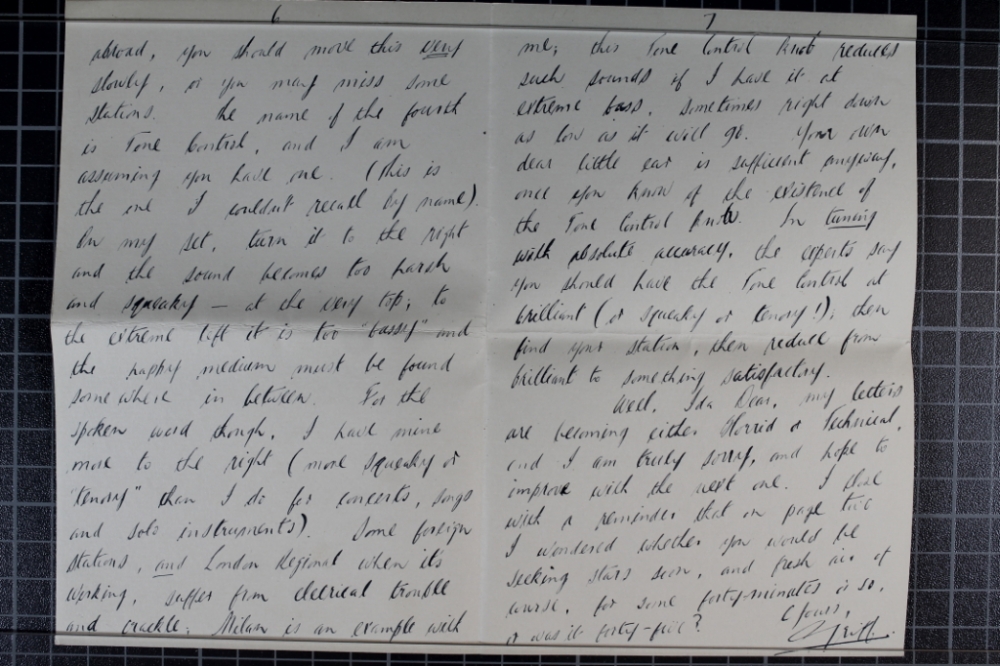 6
abroad, you should move this very
slowly, or you may miss some
stations. The name of the fourth
is Tone Control, and I am
assuming you have one. (This is
the one I couldn't recall by name).
On my set, turn it to the right
and the sound becomes too harsh
and squeaky — at the very top; to
the extreme left it is too "bassy" and
the happy medium must be found
somewhere in between. For the
spoken word though, I have mine
more to the right (more squeaky or
"tenory" than I do for concerts, songs
and solo instruments). Some foreign
stations, and London Regional when it's
working, suffer from electrical trouble
and crackle; Milan is an example with
7
me; this Tone Control knob reduces
such sounds if I have it at
extreme bass, sometimes right down
as low as it will go. Your own
dear little ear is sufficient anyway,
once you know of the existence of
the Tone Control knob. In tuning
with absolute accuracy, the experts say
you should have the Tone Control at
brilliant (or squeaky or tenory!); then
find your station, then reduce from
brilliant to something satisfactory.
Well, Ida Dear, my letters
are becoming either Horrid or Technical,
and I am truly sorry, and hope to
improve with the next one. I close
with a reminder that on page two
I wondered whether you would be
seeking stars soon, and fresh air of
course, for some forty-minutes or so,
or was it forty-five?
Yours,